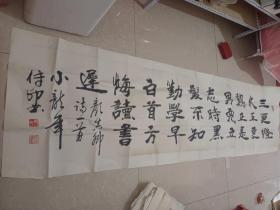 三更燈
火五更
鷄正是
男兒立
志時黑
髮不知
勤學早
白首方
悔讀書
遲
顏真卿
詩一首
小龍年